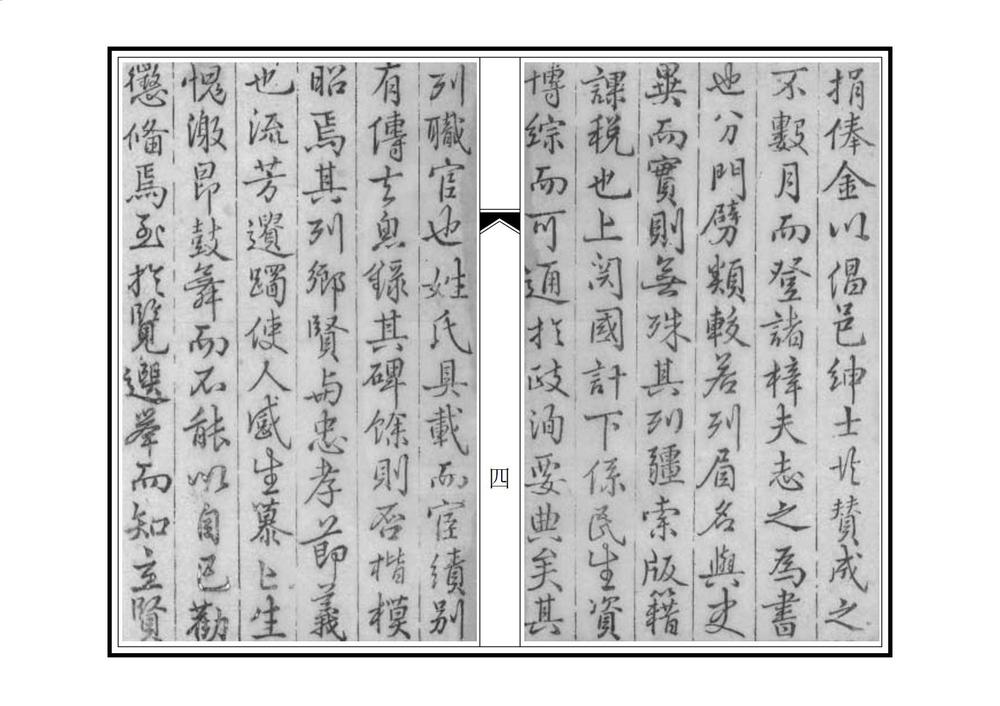 捐俸金以倡邑紳士共贊成之
不數月而登諸梓夫志之為書
也分門劈類較若列眉名與史
異而實則無殊其列疆索版籍
課稅也上関國計下係民生資
博綜而可通於政洵要典矣其
四
列職官也姓氏具載而宦績別
有傳去思錄其碑餘則否楷模
昭焉其列鄉賢與忠孝節義
也流芳遺躅使人感生慕慕生
愧激昂鼓舞而不能以自已勸
懲備焉至於覽選舉而知立賢